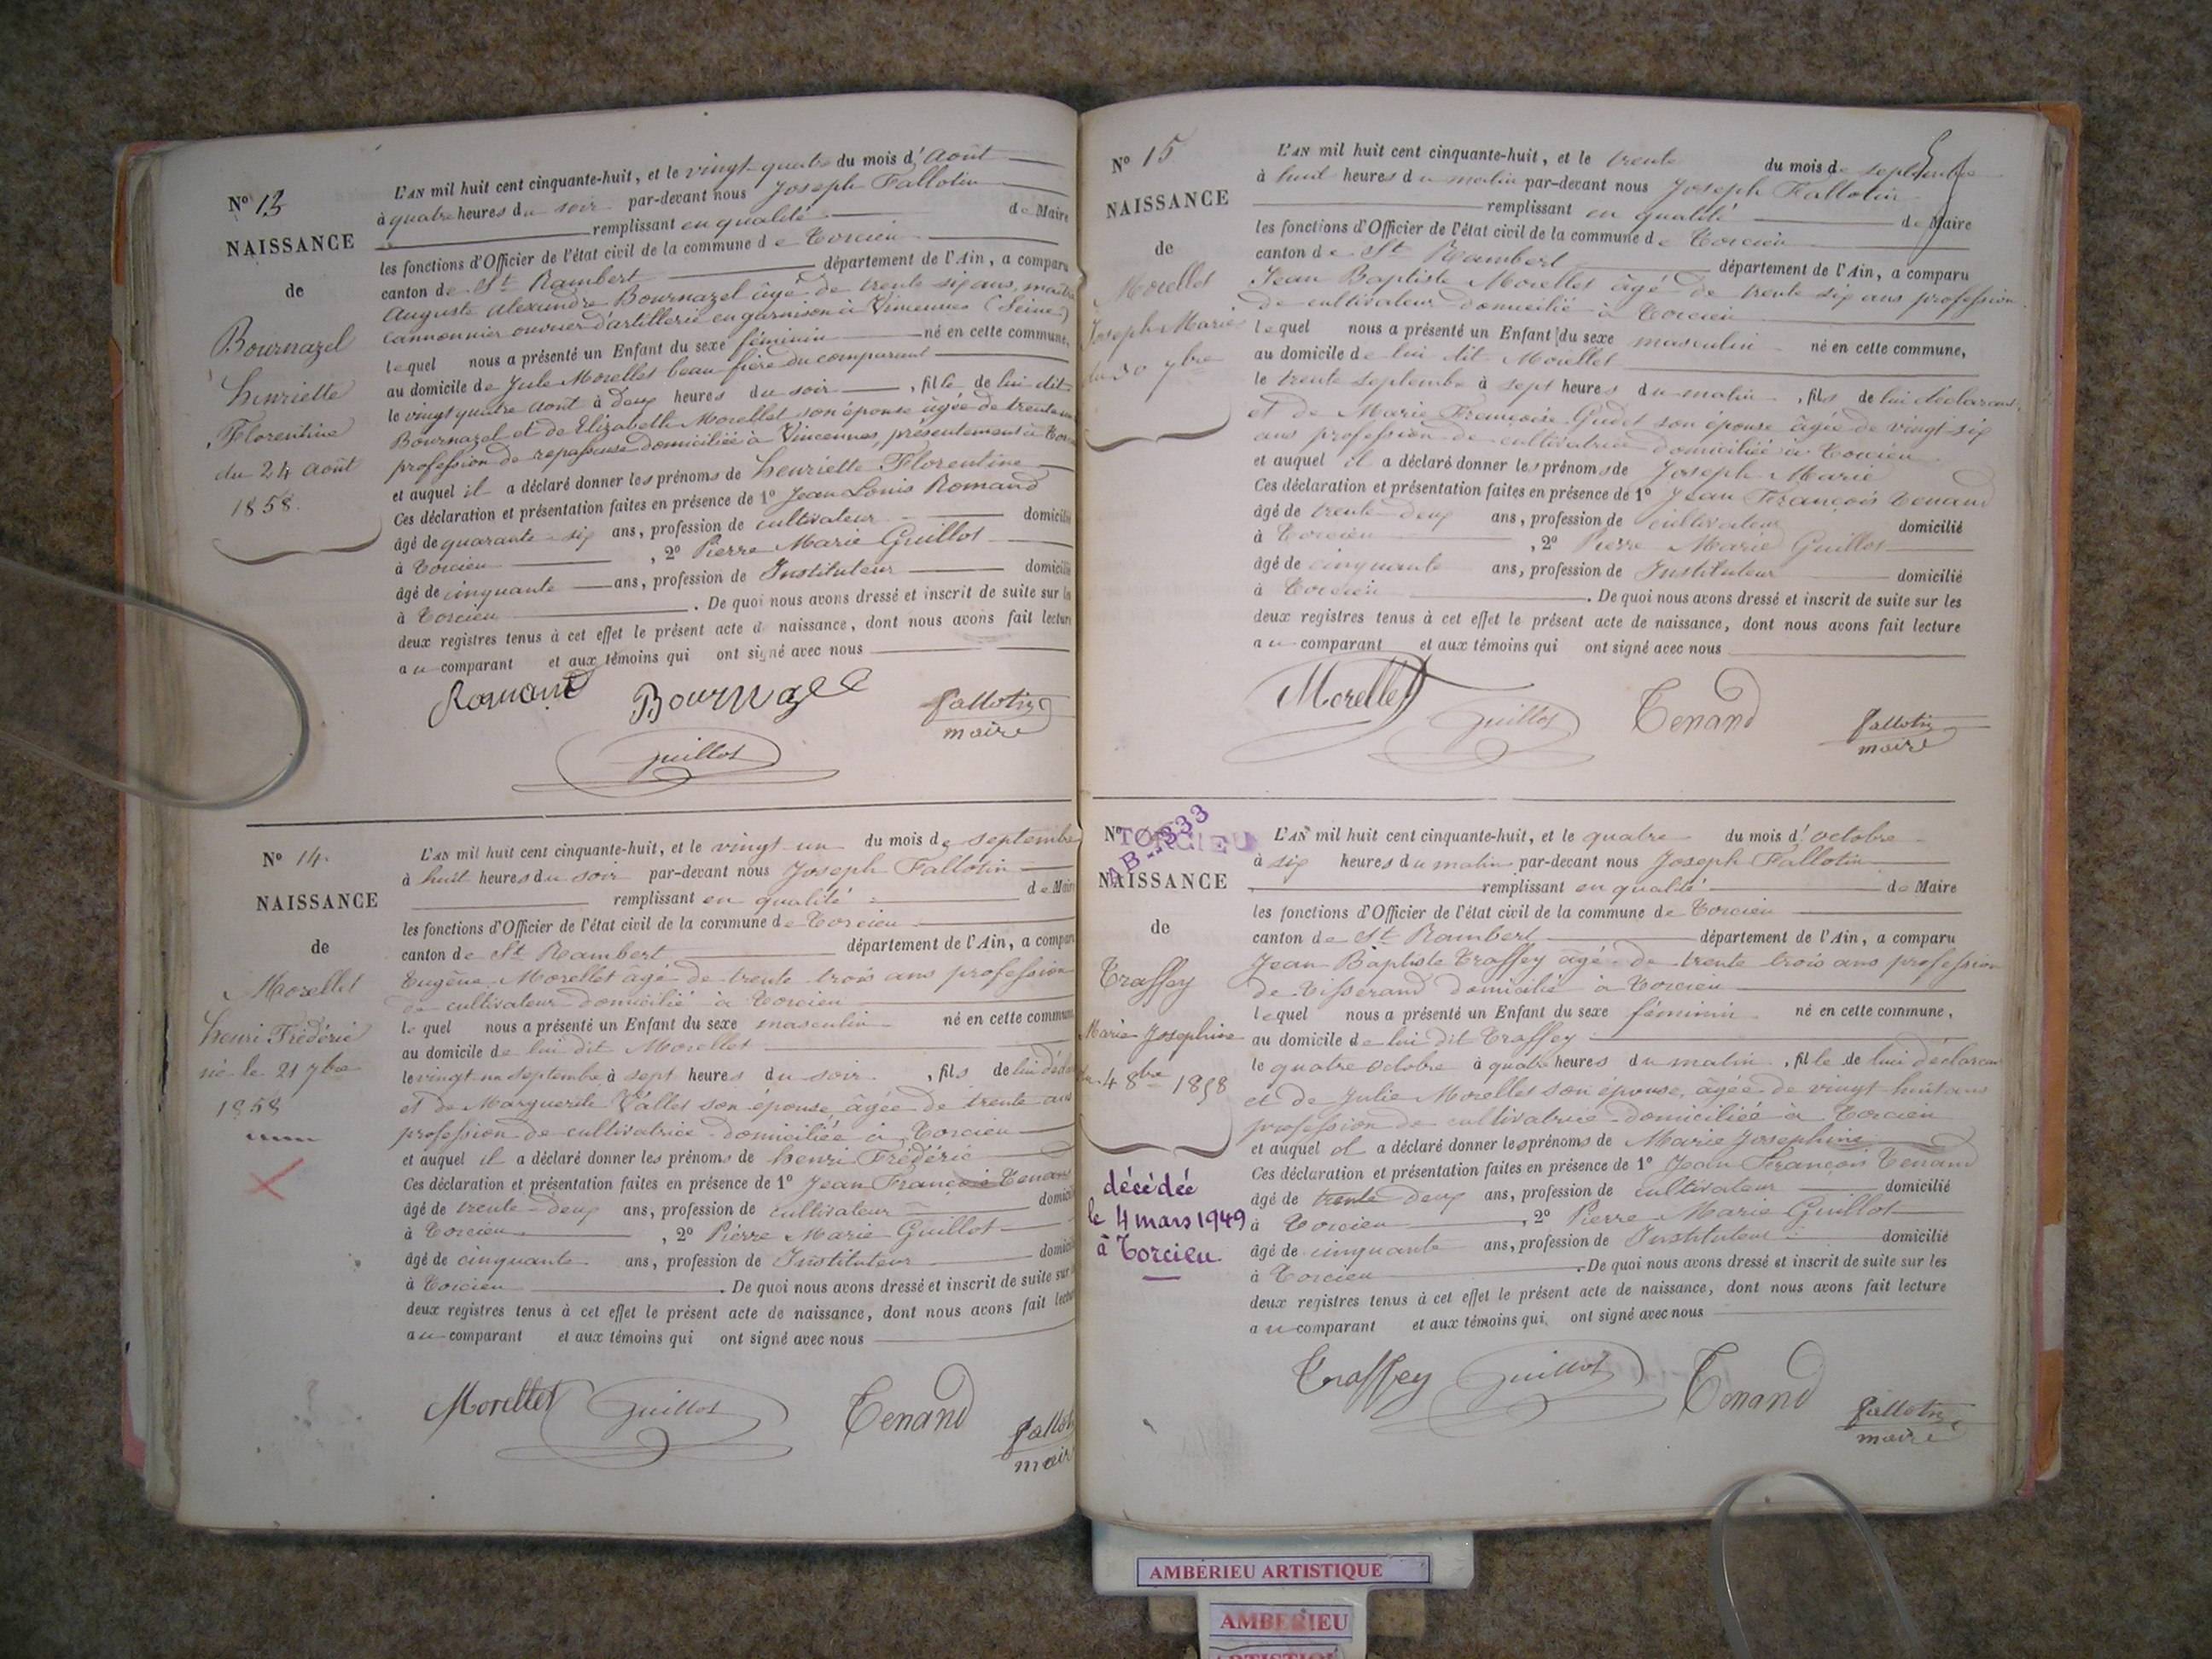 Nº 13
NAISSANCE
de
Bournazel
henriette
Florentine
du 24 août
1858.
L'AN mil huit cent cinquante-huit, et le vingt-quatre du mois d'août
à quatre heures du soir par-devant nous Joseph Fallotin
remplissant en qualité de Maire
les fonctions d'Officier de l'état civil de la commune de Torcieu
canton de St Rambert département de l'Ain, a comparu
Auguste Alexandre Bournazel âgé de trente six ans, maître
cannonnier ouvrier d'artillerie en garnison à Vincennes (Seine)
lequel nous a présenté un Enfant du sexe féminin né en cette commune,
au domicile de Jule Morellet beau frère du comparant
le vingt quatre août à deux heures du soir, fille de lui dit
Bournazel et de Elizabeth Morellet son épouse âgée de trente
profession de repasseuse domiciliée à Vincennes, présentement à
et auquel il a déclaré donner les prénoms de henriette Florentine
Ces déclaration et présentation faites en présence de 1º Jean Louis Romand
âgé de quarante-six ans, profession de cultivateur domicilié
à Torcieu, 2º Pierre Marie Guillot
âgé de cinquante ans, profession de Instituteur domicilié
à Torcieu. De quoi nous avons dressé et inscrit de suite sur les
deux registres tenus à cet effet le présent acte de naissance, dont nous avons fait lecture
au comparant et aux témoins qui ont signé avec nous
Romand Bournazel Fallotin
maire
Guillot
Nº 14.
NAISSANCE
de
Morellet
henri Frédéric
né le 21 7bre
1858
L'AN mil huit cent cinquante-huit, et le vingt-un du mois de septembre
à huit heures du soir par-devant nous Joseph Fallotin
remplissant en qualité de Maire
les fonctions d'Officier de l'état civil de la commune de Torcieu
canton de St Rambert département de l'Ain, a comparu
Eugène Morellet âgé de trente trois ans profession
de cultivateur domicilié à Torcieu
lequel nous a présenté un Enfant du sexe masculin né en cette commune
au domicile de lui dit Morellet
le vingt-un septembre à sept heures du soir, fils de lui
et de Marguerite Vallet son épouse âgée de trente ans
profession de cultivatrice domiciliée à Torcieu
et auquel il a déclaré donner les prénoms de henri Frédéric
Ces déclaration et présentation faites en présence de 1º Jean François Tenand
âgé de trente-deux ans, profession de cultivateur domicilié
à Torcieu, 2º Pierre Marie Guillot
âgé de cinquante ans, profession de Instituteur domicilié
à Torcieu. De quoi nous avons dressé et inscrit de suite sur
deux registres tenus à cet effet le présent acte de naissance, dont nous avons fait lecture
au comparant et aux témoins qui ont signé avec nous
Morellet Guillot Tenand Fallotin
maire
Nº 15
NAISSANCE
de
Morellet
Joseph Marie
du 30 7bre
L'AN mil huit cent cinquante-huit, et le trente du mois de septembre
à huit heures du matin par-devant nous Joseph Fallotin
remplissant en qualité de Maire
les fonctions d'Officier de l'état civil de la commune de Torcieu
canton de St Rambert département de l'Ain, a comparu
Jean Baptiste Morellet âgé de trente six ans profession
de cultivateur domicilié à Torcieu
lequel nous a présenté un Enfant du sexe masculin né en cette commune,
au domicile de lui dit Morellet
le trente septembre à sept heures du matin, fils de lui déclarant
et de Marie Françoise Gudet son épouse âgée de vingt-six
ans profession de cultivatrice domiciliée à Torcieu
et auquel il a déclaré donner les prénoms de Joseph Marie
Ces déclaration et présentation faites en présence de 1º Jean François Tenand
âgé de trente-deux ans, profession de cultivateur domicilié
à Torcieu, 2º Pierre Marie Guillot
âgé de cinquante ans, profession de Instituteur domicilié
à Torcieu. De quoi nous avons dressé et inscrit de suite sur les
deux registres tenus à cet effet le présent acte de naissance, dont nous avons fait lecture
au comparant et aux témoins qui ont signé avec nous
Morellet Guillot Tenand Fallotin
maire
Nº
TORCIEU
AB-333
NAISSANCE
de
Traffey
Marie Josephine
du 4 8bre 1858
décédée
le 4 mars 1949
à Torcieu
L'AN mil huit cent cinquante-huit, et le quatre du mois d'octobre
à six heures du matin par-devant nous Joseph Fallotin
remplissant en qualité de Maire
les fonctions d'Officier de l'état civil de la commune de Torcieu
canton de St Rambert département de l'Ain, a comparu
Jean Baptiste Traffey âgé de trente trois ans profession
de Tisserand domicilié à Torcieu
lequel nous a présenté un Enfant du sexe féminin né en cette commune,
au domicile de lui dit Traffey
le quatre octobre à quatre heures du matin, fille de lui déclarant
et de Julie Morellet son épouse, âgée de vingt-huit ans
profession de cultivatrice domiciliée à Torcieu
et auquel il a déclaré donner les prénoms de Marie Josephine
Ces déclaration et présentation faites en présence de 1º Jean François Tenand
âgé de trente-deux ans, profession de cultivateur domicilié
à Torcieu, 2º Pierre Marie Guillot
âgé de cinquante ans, profession de Instituteur domicilié
à Torcieu. De quoi nous avons dressé et inscrit de suite sur les
deux registres tenus à cet effet le présent acte de naissance, dont nous avons fait lecture
au comparant et aux témoins qui ont signé avec nous
Traffey Guillot Tenand Fallotin
maire
AMBÉRIEU ARTISTIQUE
AMBERIEU
ARTISTIQUE